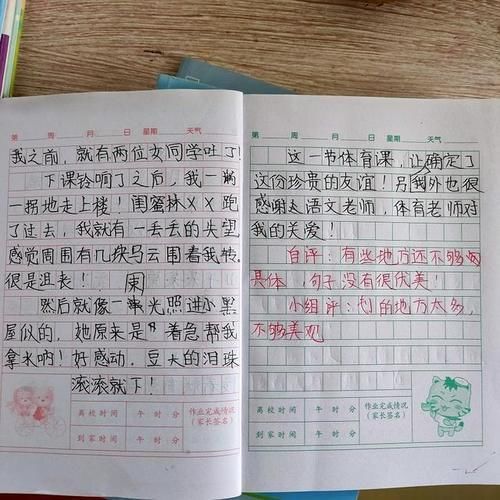 第 周 月 日 星期 天气
我之前，就有两位女同学吐了！
下课铃响了之后，我一瘸
一拐地走上楼！闺蜜林XX跑
了过去，我就有一丢丢的失望
感觉周围有几块乌云围着我转。
很是沮丧！
然后就像一束光照进小黑
屋似的，她原来是着急帮我
拿水呐！好感动，豆大的泪珠
滚滚就下！
离校时间 午 时 分
到家时间 午 时 分
作业完成情况
（家长签名）
第 周 月 日 星期 天气
这一节体育课，让我确定了
这份珍贵的友谊！另外也很
感谢语文老师，体育老师对
我的关爱！
自评：有些地方还不够
具体，句子没有很优美！
小组评：的地方太多，
不够美观
离校时间 午 时 分
到家时间 午 时 分
作业完成情况
（家长签名）